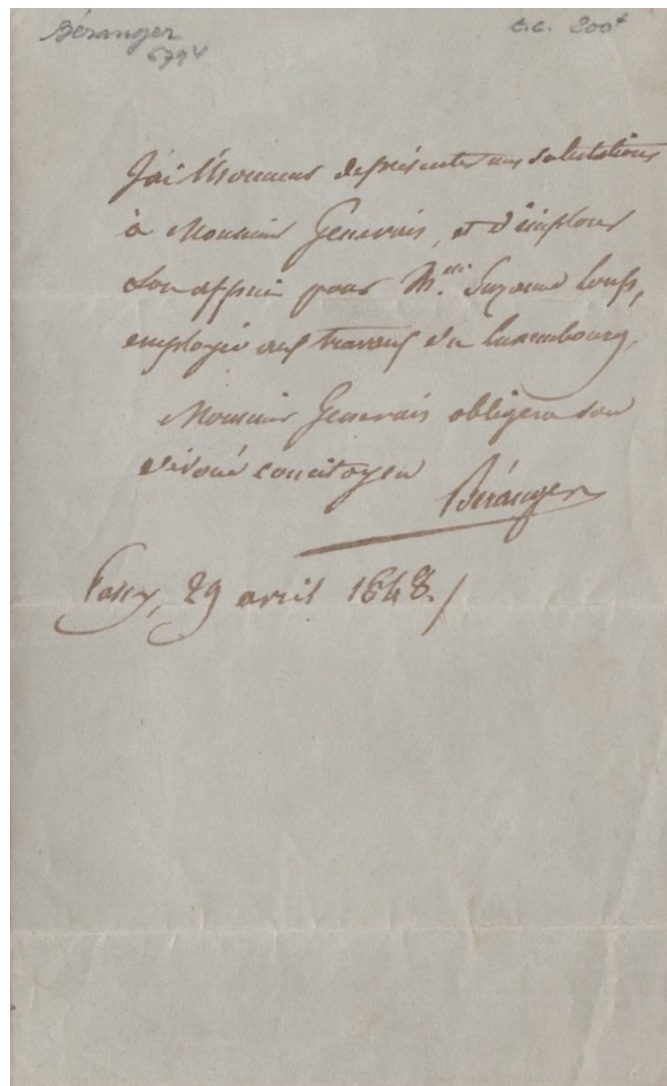 Béranger
c.c. 200f
J'ai l'honneur de présenter mes salutations
à Monsieur Genevais, et d'implorer
son appui pour Mlle Suzanne
employée aux travaux du Luxembourg.
Monsieur Genevais obligera son
dévoué concitoyen
Béranger
Passy, 29 avril 1848./